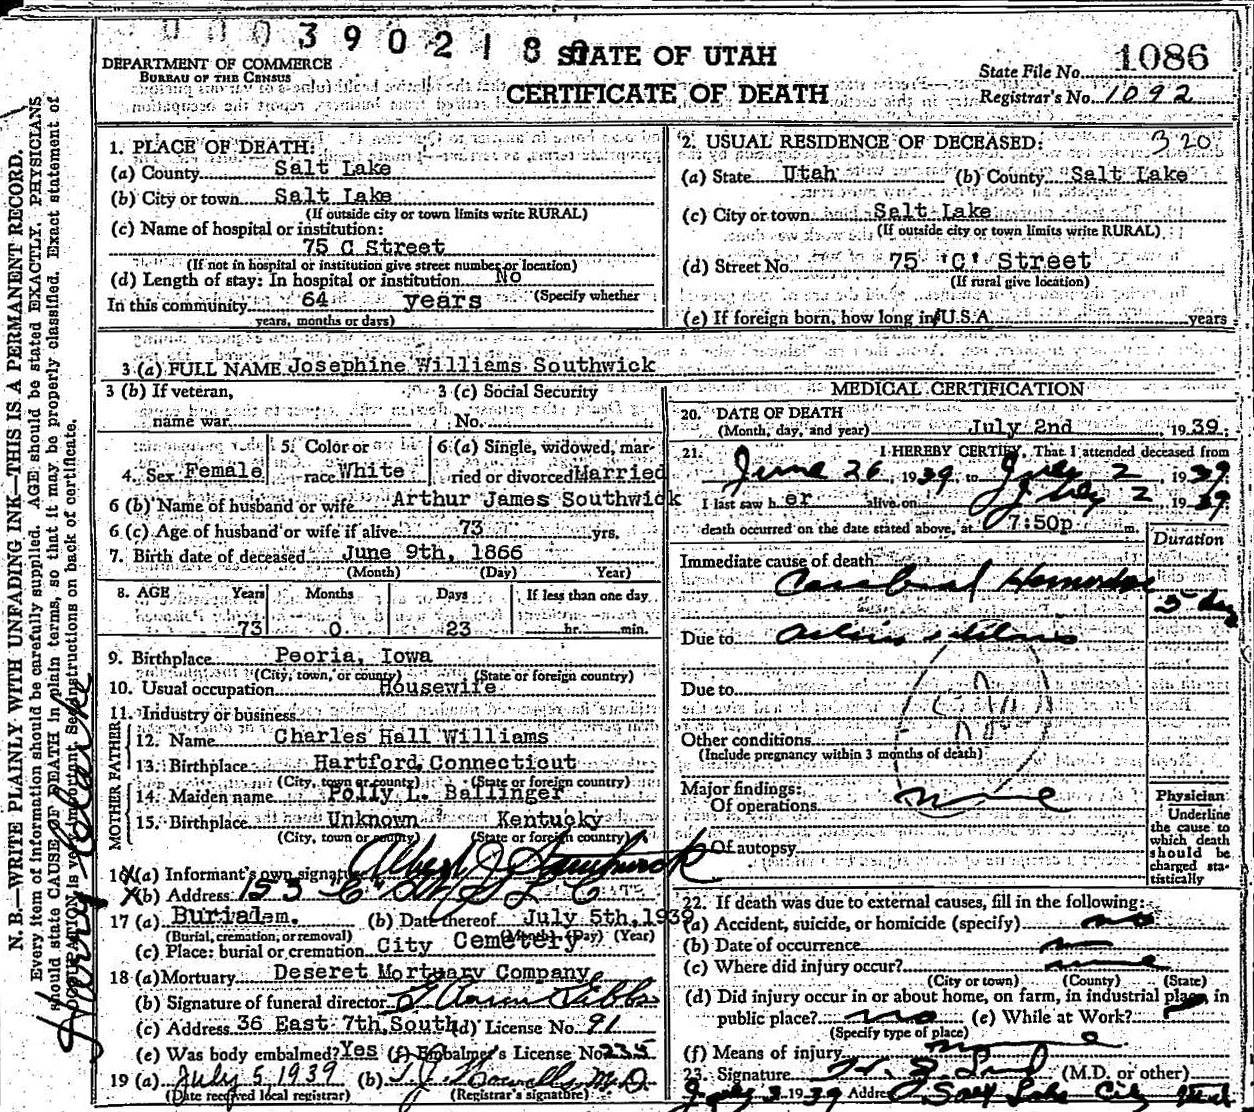 0003902180 STATE OF UTAH
DEPARTMENT OF COMMERCE
BUREAU OF THE CENSUS
CERTIFICATE OF DEATH
State File No. 1086
Registrar's No. 1092
N. B.—WRITE PLAINLY WITH UNFADING INK—THIS IS A PERMANENT RECORD.
Every item of information should be carefully supplied. AGE should be stated EXACTLY. PHYSICIANS
should state CAUSE OF DEATH in plain terms, so that it may be properly classified. Exact statement of
OCCUPATION is very important. See instructions on back of certificate.
1. PLACE OF DEATH:
(a) County Salt Lake
(b) City or town Salt Lake
(If outside city or town limits write RURAL)
(c) Name of hospital or institution:
75 C Street
(If not in hospital or institution give street number or location)
(d) Length of stay: In hospital or institution No
(Specify whether
In this community 64 years
years, months or days)
2. USUAL RESIDENCE OF DECEASED: 320
(a) State Utah (b) County Salt Lake
(c) City or town Salt Lake
(If outside city or town limits write RURAL)
(d) Street No. 75 'C' Street
(If rural give location)
(e) If foreign born, how long in U.S.A. years
3 (a) FULL NAME Josephine Williams Southwick
3 (b) If veteran,
name war
3 (c) Social Security
No.
4. Sex Female 5. Color or race White 6 (a) Single, widowed, mar-
ried or divorced Married
6 (b) Name of husband or wife Arthur James Southwick
6 (c) Age of husband or wife if alive 73 yrs.
7. Birth date of deceased June 9th, 1866
(Month) (Day) Year)
8. AGE Years Months Days If less than one day
73 0 23 hr. min.
9. Birthplace Peoria, Iowa
(City, town, or county) (State or foreign country)
10. Usual occupation Housewife
11. Industry or business
FATHER
12. Name Charles Hall Williams
13. Birthplace Hartford, Connecticut
(City, town or county) (State or foreign country)
MOTHER
14. Maiden name Polly L. Ballinger
15. Birthplace Unknown Kentucky
(City, town or county) (State or foreign country)
16 (a) Informant's own signature Albert J Southwick
(b) Address 153 C St S L C
17 (a) Burial (b) Date thereof July 5th, 1939
(Burial, cremation, or removal) (Month) (Day) (Year)
(c) Place: burial or cremation City Cemetery
18 (a) Mortuary Deseret Mortuary Company
(b) Signature of funeral director
(c) Address 36 East 7th South (d) License No. 91
(e) Was body embalmed? Yes (f) Embalmer's License No. 235
19 (a) July 5, 1939 (b) M.D.
(Date received local registrar) (Registrar's signature)
MEDICAL CERTIFICATION
20. DATE OF DEATH
(Month, day, and year) July 2nd 1939
21. I HEREBY CERTIFY, That I attended deceased from
June 26, 1939, to July 2, 1939
I last saw her alive on July 2 1939
death occurred on the date stated above, at 7:50p m.
Duration
Immediate cause of death
Cerebral Hemorrhage
5 day
Due to
Due to
Other conditions
(Include pregnancy within 3 months of death)
Major findings:
Of operations none
Of autopsy
Physician
Underline
the cause to
which death
should be
charged sta-
tistically
22. If death was due to external causes, fill in the following:
(a) Accident, suicide, or homicide (specify) no
(b) Date of occurrence
(c) Where did injury occur? none
(City or town) (County) (State)
(d) Did injury occur in or about home, on farm, in industrial place, in
public place? no (e) While at Work?
(Specify type of place)
(f) Means of injury
23. Signature (M.D. or other)
July 3 1939 Address Salt Lake City Utah